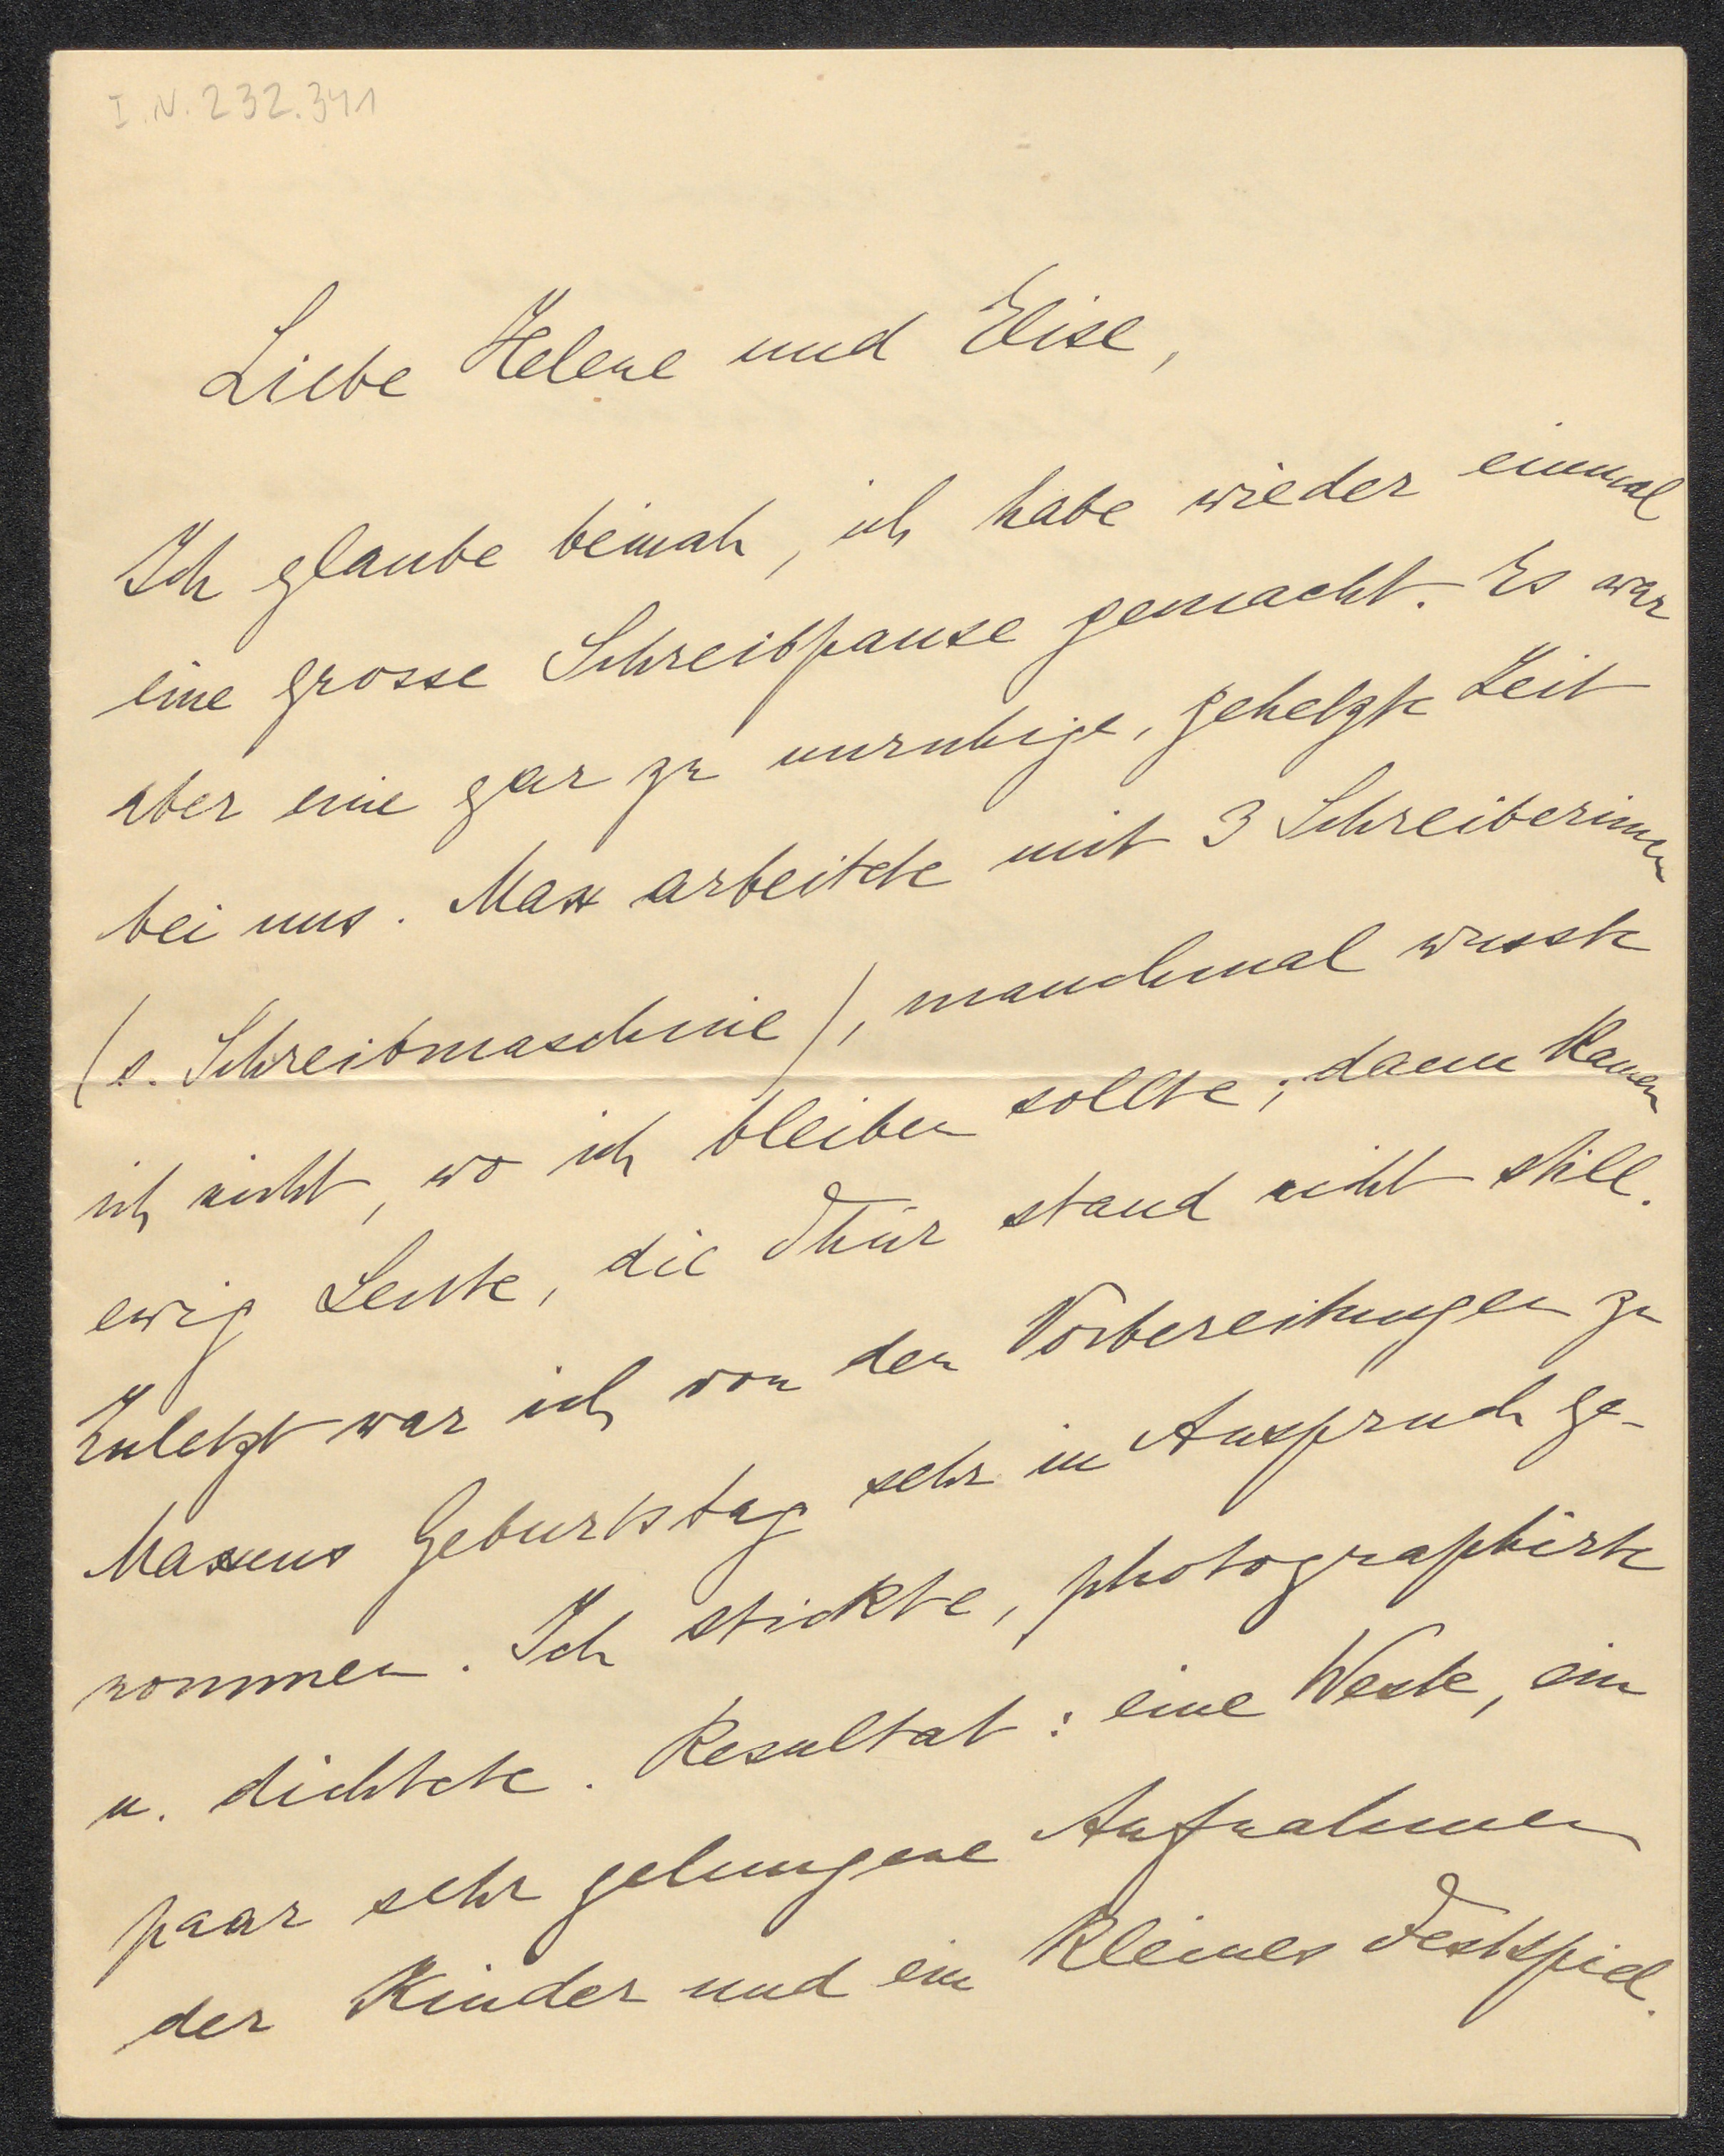 I.N. 232.341
Liebe Helene und Elise,
Ich glaube beinah, ich habe wieder einmal
eine grosse Schreibpause gemacht. Es war
aber eine gar zu unruhige, gehetzte Zeit
bei uns. Max arbeitete mit 3 Schreiberinnen
(s. Schreibmaschine), manchmal wusste
ich nicht, wo ich bleiben sollte; dann kamen
ewig Leute, die Thür stand nicht still.
Zuletzt war ich von den Vorbereitungen zu
Maxens Geburtstag sehr in Anspruch ge-
nommen. Ich stickte, photographirte
u. dichtete. Resultat: eine Weste, ein
paar sehr gelungene Aufnahmen
der Kinder und ein kleines Festspiel.